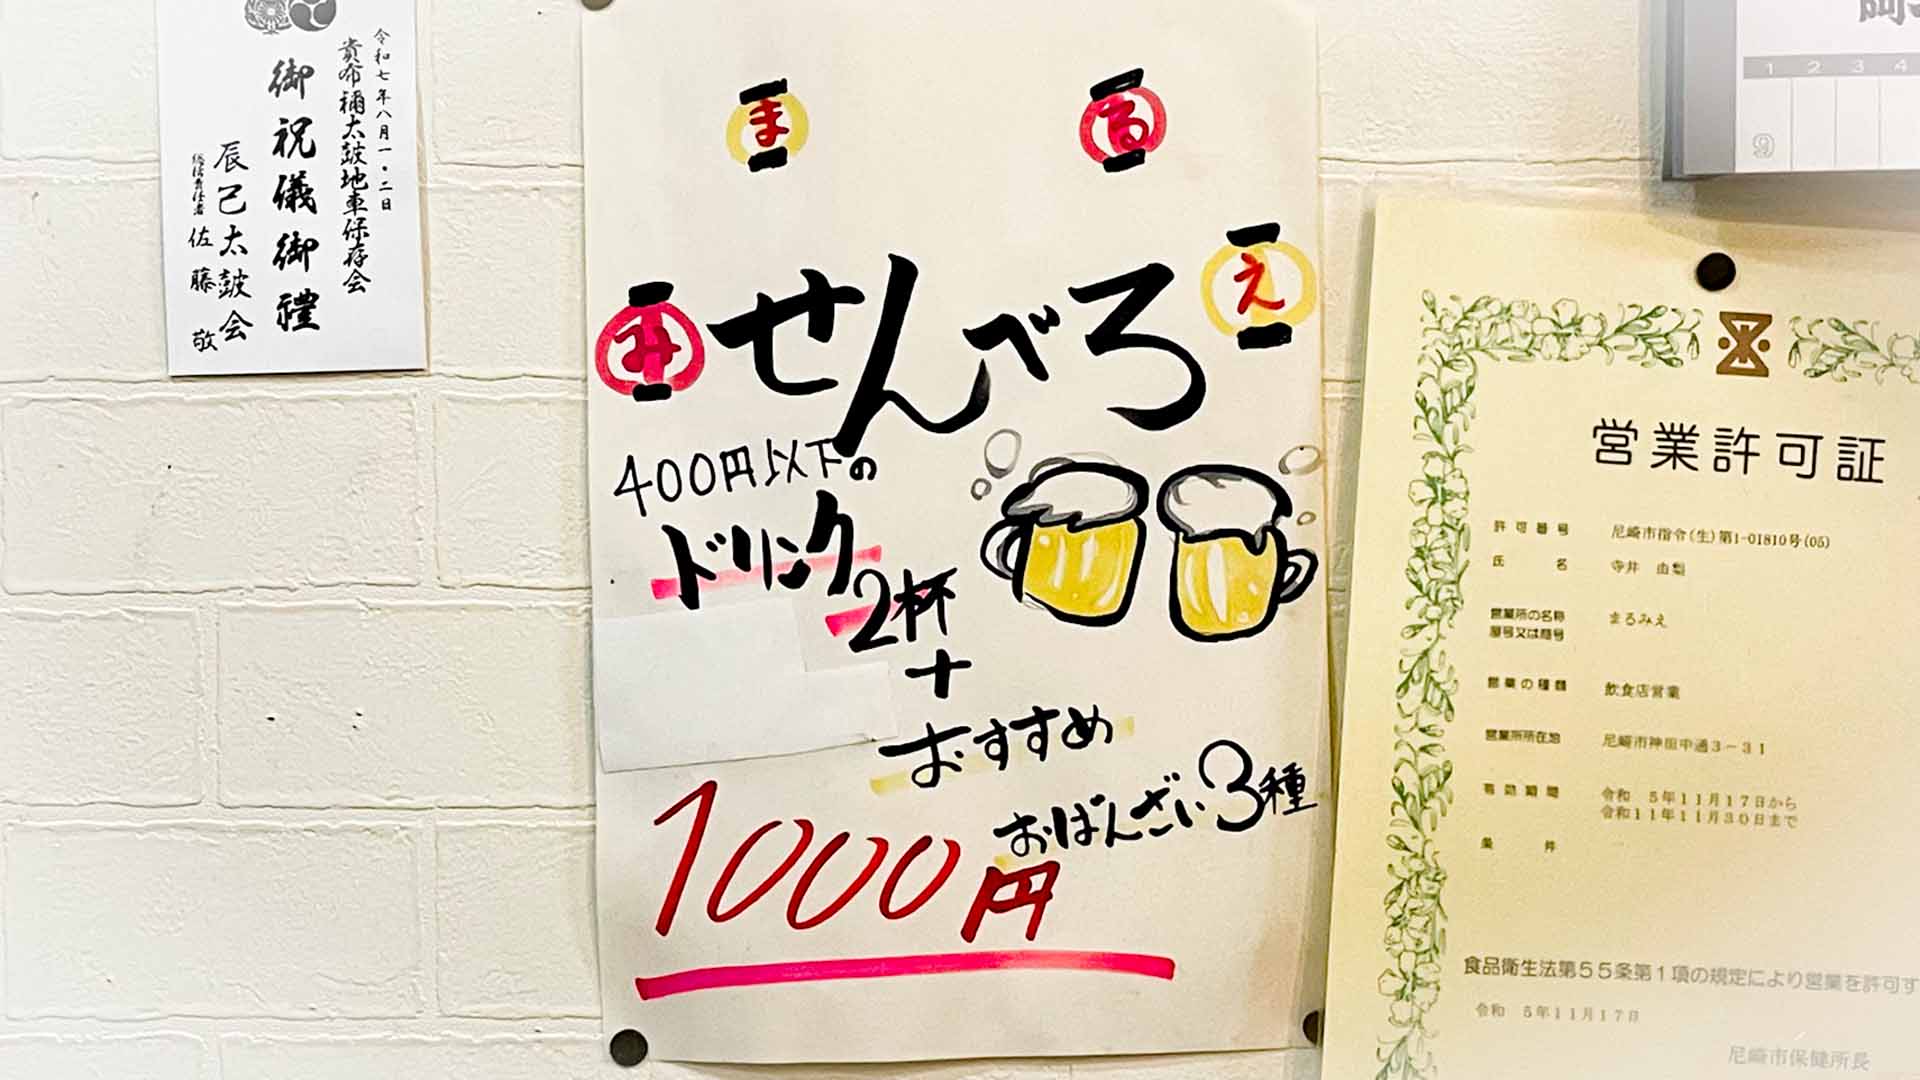 令和七年八月一・二日
貴布禰太鼓地車保存会
御祝儀御禮
辰己太鼓会
総括責任者 佐藤 敬
ま
る
み
え
せんべろ
400円以下の
ドリンク
2杯
+
おすすめ
おばんざい3種
1000円
1 2 3 4
9
営業許可証
許可番号 尼崎市指令(生)第1-01810号(05)
氏名 寺井 由梨
営業所の名称 まるみえ
屋号又は商号
営業の種類 飲食店営業
営業所所在地 尼崎市神田中通3-31
有効期間 令和 5年11月17日から
令和11年11月30日まで
条件
食品衛生法第55条第1項の規定により営業を許可す
令和 5年11月17日
尼崎市保健所長